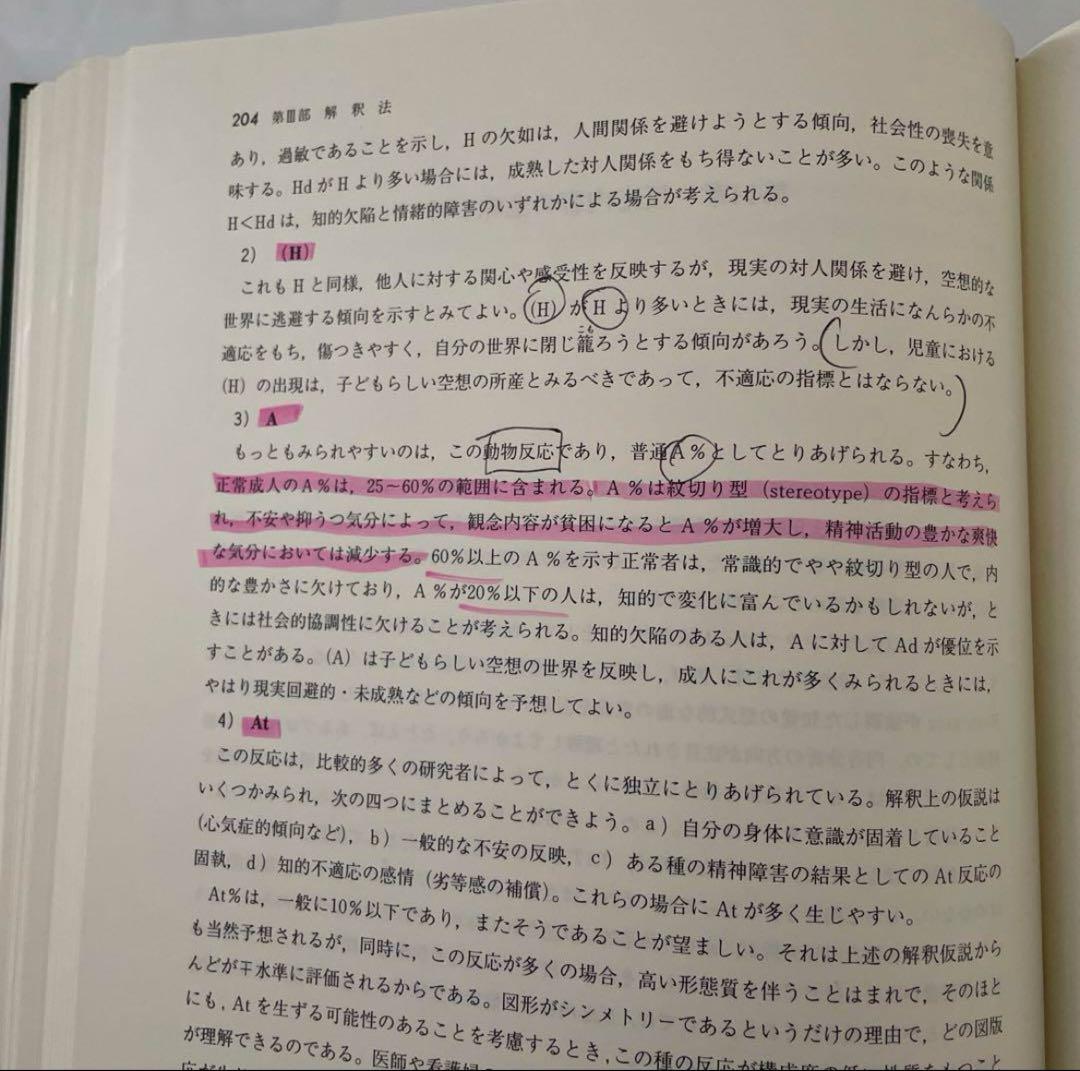 204 第Ⅲ部 解 釈 法
あり，過敏であることを示し，H の欠如は，人間関係を避けようとする傾向，社会性の喪失を意
味する。Hd が H より多い場合には，成熟した対人関係をもち得ないことが多い。このような関係
H＜Hd は，知的欠陥と情緒的障害のいずれかによる場合が考えられる。
2) (H)
これも H と同様，他人に対する関心や感受性を反映するが，現実の対人関係を避け，空想的な
世界に逃避する傾向を示すとみてよい。(H) が H より多いときには，現実の生活になんらかの不
適応をもち，傷つきやすく，自分の世界に閉じ籠ろうとする傾向があろう。しかし，児童における
(H) の出現は，子どもらしい空想の所産とみるべきであって，不適応の指標とはならない。
3) A
もっともみられやすいのは，この動物反応であり，普通A％としてとりあげられる。すなわち，
正常成人のA％は，25～60％の範囲に含まれる。A％は紋切り型（stereotype）の指標と考えら
れ，不安や抑うつ気分によって，観念内容が貧困になるとA％が増大し，精神活動の豊かな爽快
な気分においては減少する。60％以上のA％を示す正常者は，常識的でやや紋切り型の人で，内
的な豊かさに欠けており，A％が20％以下の人は，知的で変化に富んでいるかもしれないが，と
きには社会的協調性に欠けることが考えられる。知的欠陥のある人は，Aに対してAdが優位を示
すことがある。(A) は子どもらしい空想の世界を反映し，成人にこれが多くみられるときには，
やはり現実回避的・未成熟などの傾向を予想してよい。
4) At
この反応は，比較的多くの研究者によって，とくに独立にとりあげられている。解釈上の仮説は
いくつかみられ，次の四つにまとめることができよう。a）自分の身体に意識が固着していること
(心気症的傾向など)，b）一般的な不安の反映，c）ある種の精神障害の結果としてのAt反応の
固執，d）知的不適応の感情（劣等感の補償）。これらの場合にAtが多く生じやすい。
At％は，一般に10％以下であり，またそうであることが望ましい。それは上述の解釈仮説から
も当然予想されるが，同時に，この反応が多くの場合，高い形態質を伴うことはまれで，そのほと
んどが∓水準に評価されるからである。図形がシンメトリーであるというだけの理由で，どの図版
にも，Atを生ずる可能性のあることを考慮するとき，この種の反応が構成度の低い性質をもつこと
が理解できるのである。医師や看護婦の